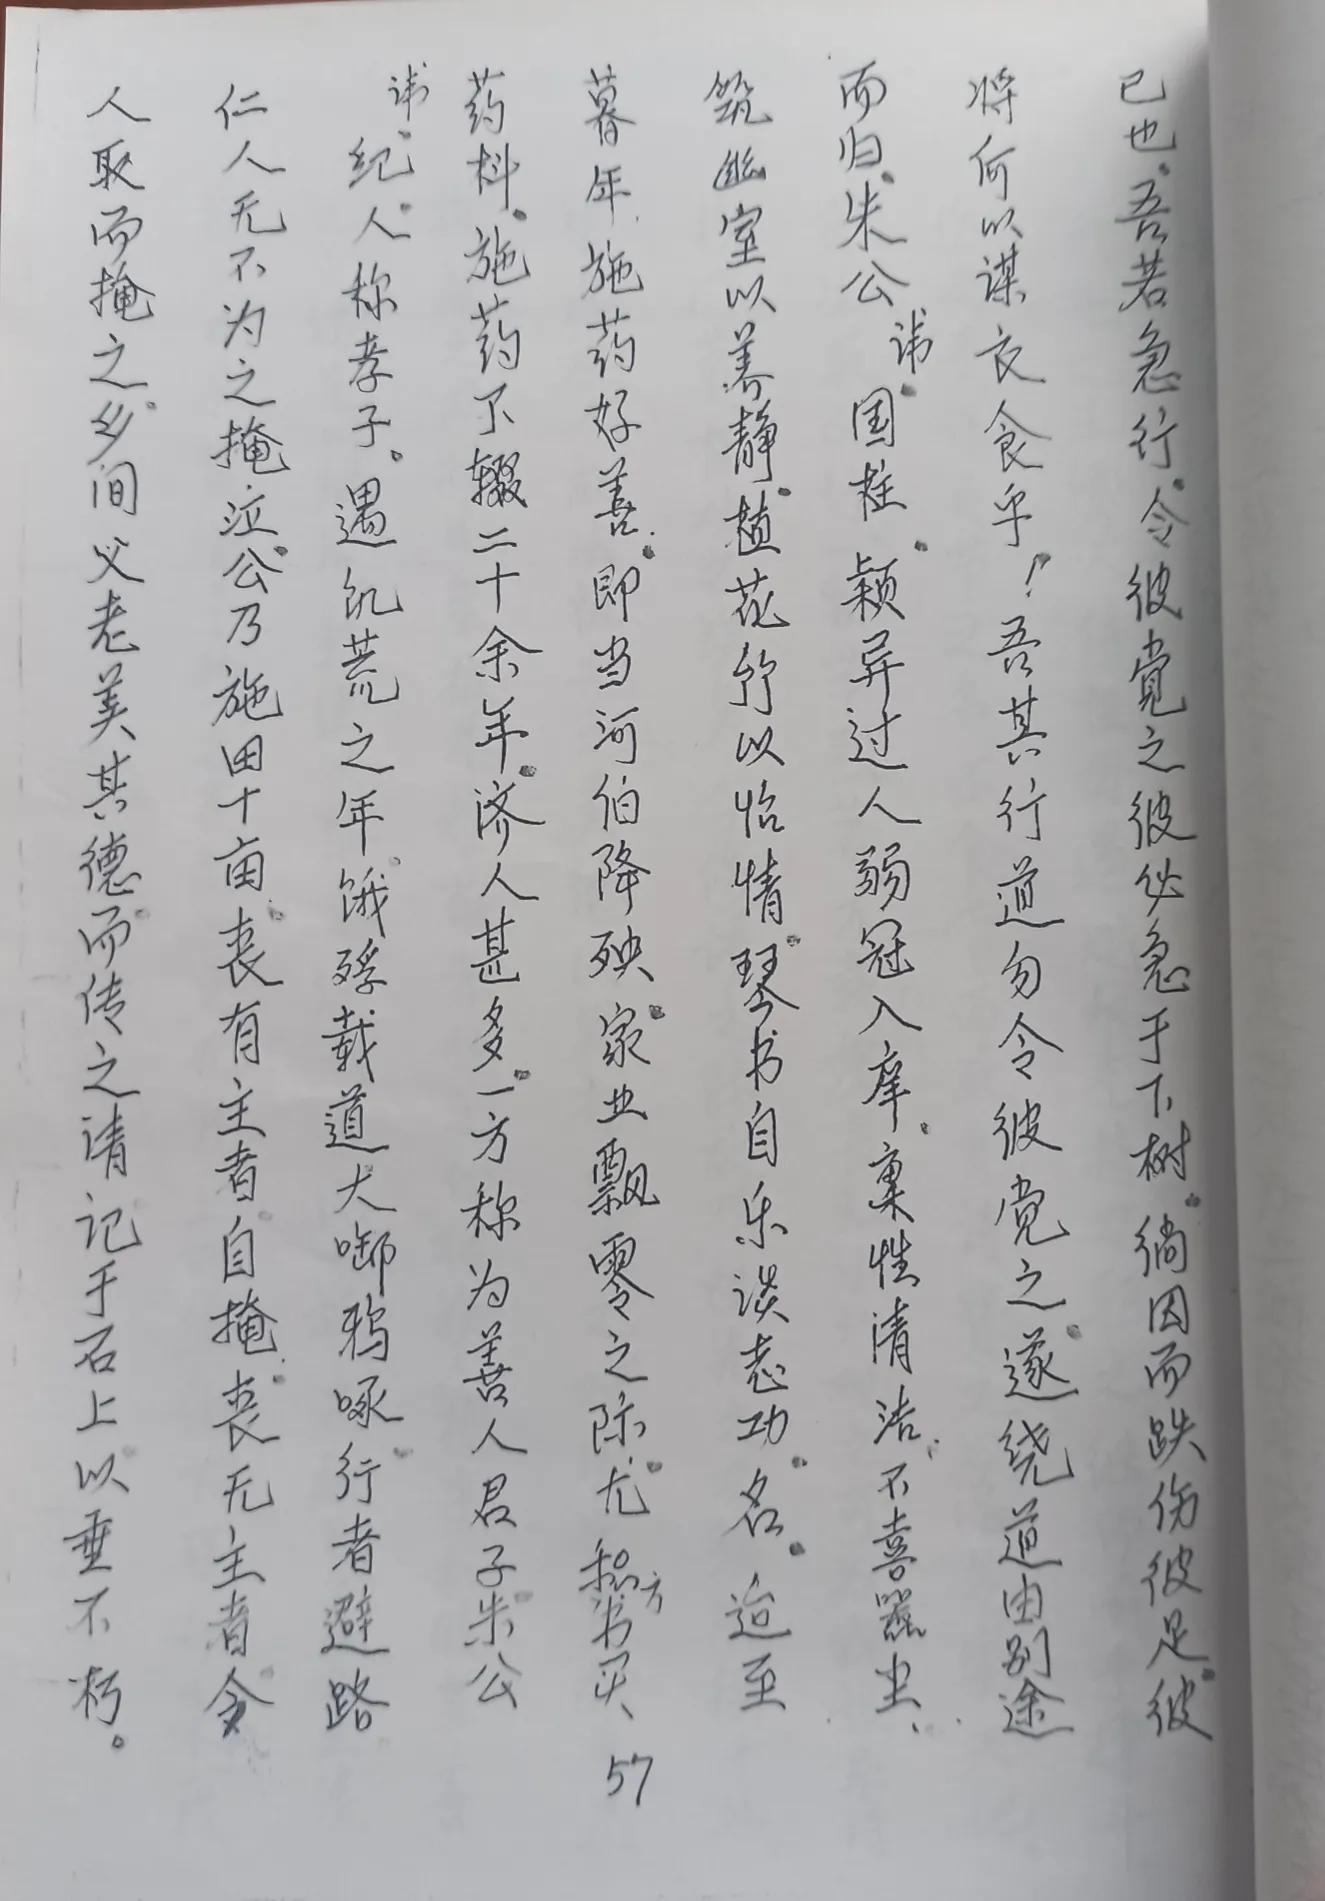 已也。吾若急行。令彼觉之彼必急于下树。倘因而跌伤彼足。彼
将何以谋衣食乎！吾其行道勿令彼觉之。遂绕道由别途
而归。朱公讳。国柱。颖异过人弱冠入庠。禀性清洁、不喜嚣尘、
筑幽室以养静。植花竹以怡情。琴书自乐谈志功名。迨至
暮年、施药好善。即当河伯降殃。家业飘零之际。尤秘方书买、
药料。施药不辍二十余年。济人甚多。一方称为善人君子。朱公
讳。纪。人。称孝子。遇饥荒之年。饿殍载道犬啣鸦啄。行者避路
仁人无不为之掩泣。公乃施田十亩。丧有主者自掩。丧无主者令
人取而掩之。乡间父老美其德。而传之请记于石上以垂不朽。
57